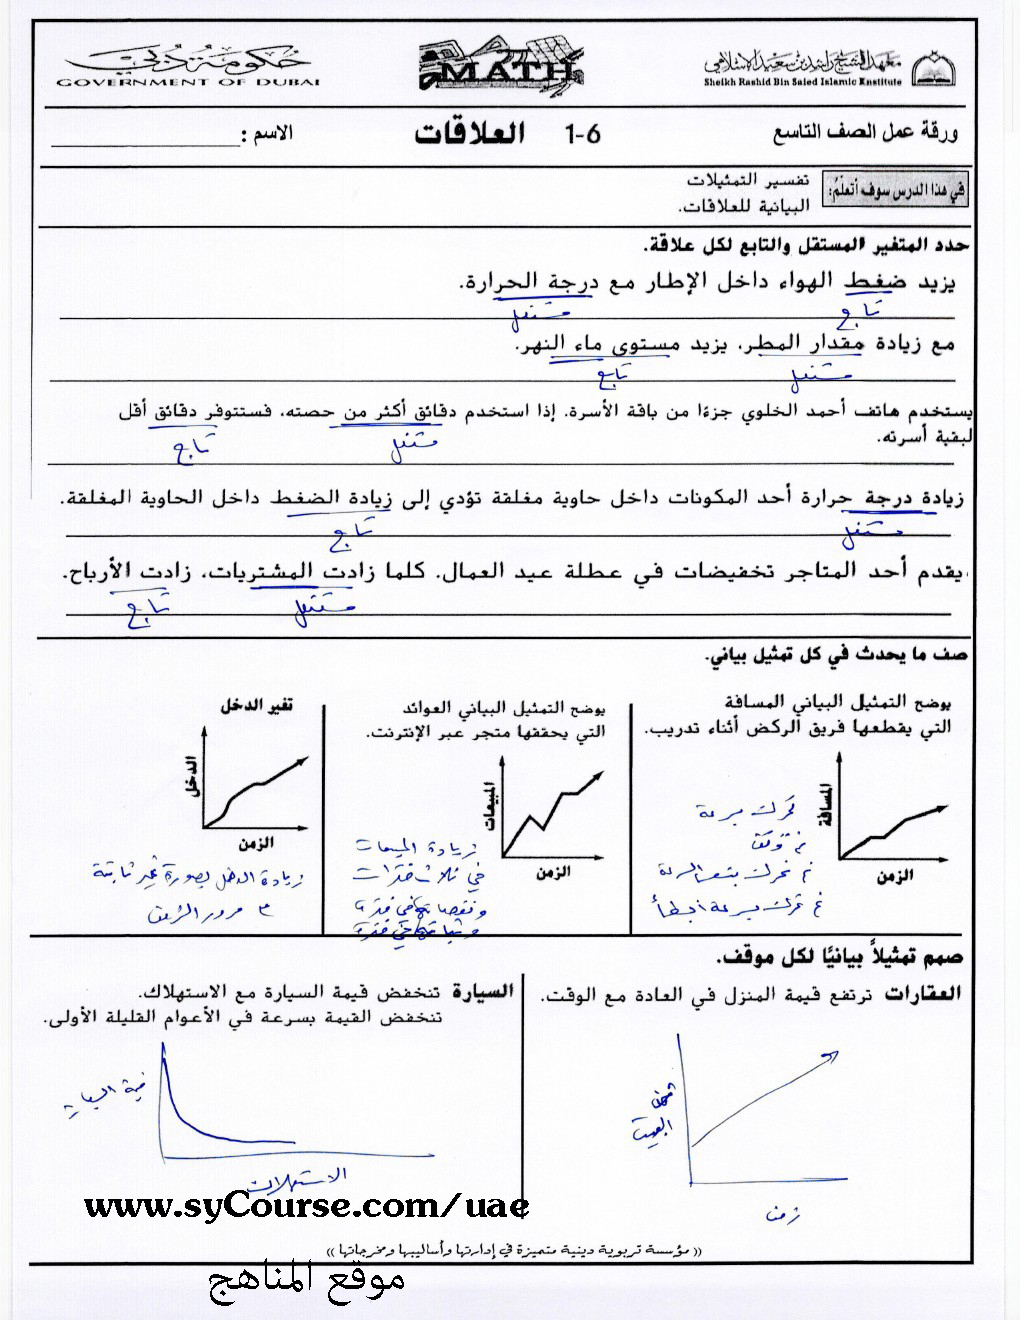 معهد الشيخ راشد بن سعيد الإسلامي
Sheikh Rashid Bin Saied Islamic Institute
MATH
حكومة دبي
GOVERNMENT OF DUBAI
ورقة عمل الصف التاسع
1-6 العلاقات
الاسم :
في هذا الدرس سوف أتعلم:
تفسير التمثيلات
البيانية للعلاقات.
حدد المتغير المستقل والتابع لكل علاقة.
يزيد ضغط الهواء داخل الإطار مع درجة الحرارة.
تابع مستقل
مع زيادة مقدار المطر، يزيد مستوى ماء النهر.
مستقل تابع
يستخدم هاتف أحمد الخلوي جزءًا من باقة الأسرة. إذا استخدم دقائق أكثر من حصته، فستتوفر دقائق أقل
لبقية أسرته.
مستقل تابع
زيادة درجة حرارة أحد المكونات داخل حاوية مغلقة تؤدي إلى زيادة الضغط داخل الحاوية المغلقة.
مستقل تابع
يقدم أحد المتاجر تخفيضات في عطلة عيد العمال. كلما زادت المشتريات، زادت الأرباح.
مستقل تابع
صف ما يحدث في كل تمثيل بياني.
يوضح التمثيل البياني المسافة
التي يقطعها فريق الركض أثناء تدريب.
المسافة
الزمن
تحرك بسرعة
ثم توقف
ثم تحرك بنفس السرعة
ثم تحرك بسرعة أبطأ
يوضح التمثيل البياني العوائد
التي يحققها متجر عبر الإنترنت.
المبيعات
الزمن
زيادة المبيعات
في ثلاث فترات
ونقصانها في فترة
وثباتها في فترة
تغير الدخل
الدخل
الزمن
زيادة الدخل بصورة غير ثابتة
مع مرور الزمن
صمم تمثيلاً بيانيًا لكل موقف.
العقارات ترتفع قيمة المنزل في العادة مع الوقت.
البيت
زمن
السيارة تنخفض قيمة السيارة مع الاستهلاك.
تنخفض القيمة بسرعة في الأعوام القليلة الأولى.
قيمة السيارة
الاستهلاك
www.syCourse.com/uae
(( مؤسسة تربوية دينية متميزة في إدارتها وأساليبها ومخرجاتها ))
موقع المناهج